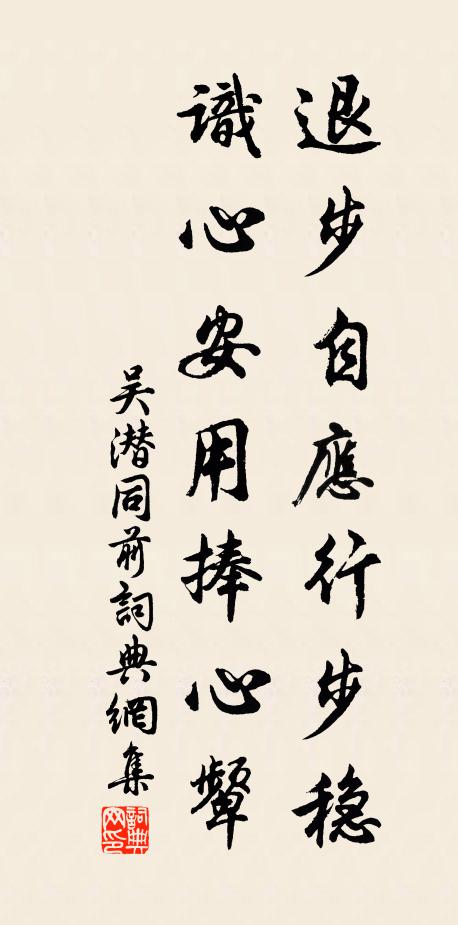 退步自應行步穩
識心安用捧心顰
吴潜同前詞典網集
詞典网印